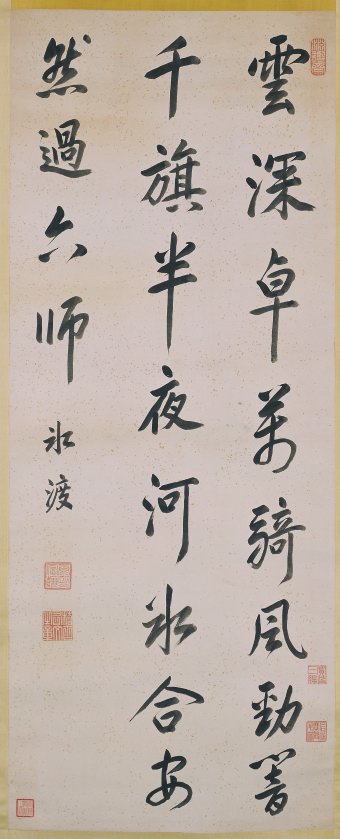 雲深卓萬騎風勁響
千旗半夜河氷合安
然過六師
氷渡